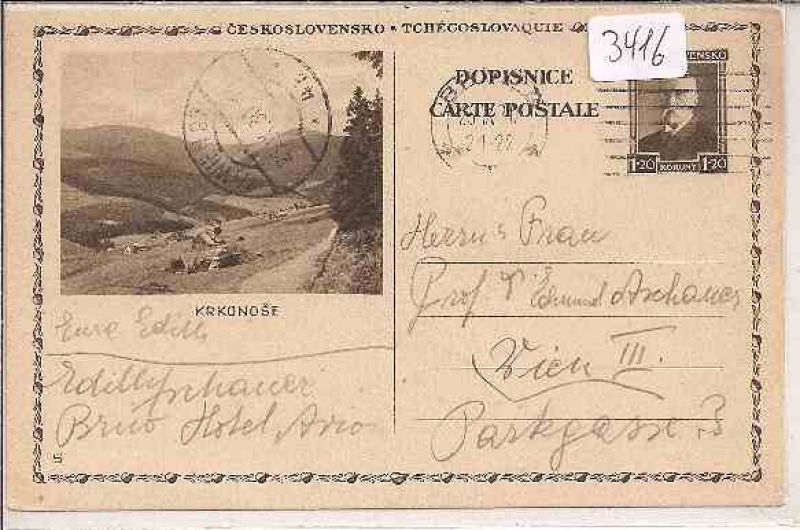 ČESKOSLOVENSKO • TCHÉCOSLOVAQUIE
3416
DOPISNICE
CARTE POSTALE
1·20 KORUNY 1·20
KRKONOŠE
Eure Edith
Edith Aschauer
Brno Hotel Avion
5
Herrn u Frau
Prof Dr Edmund Aschauer
Wien III.
Parkgasse